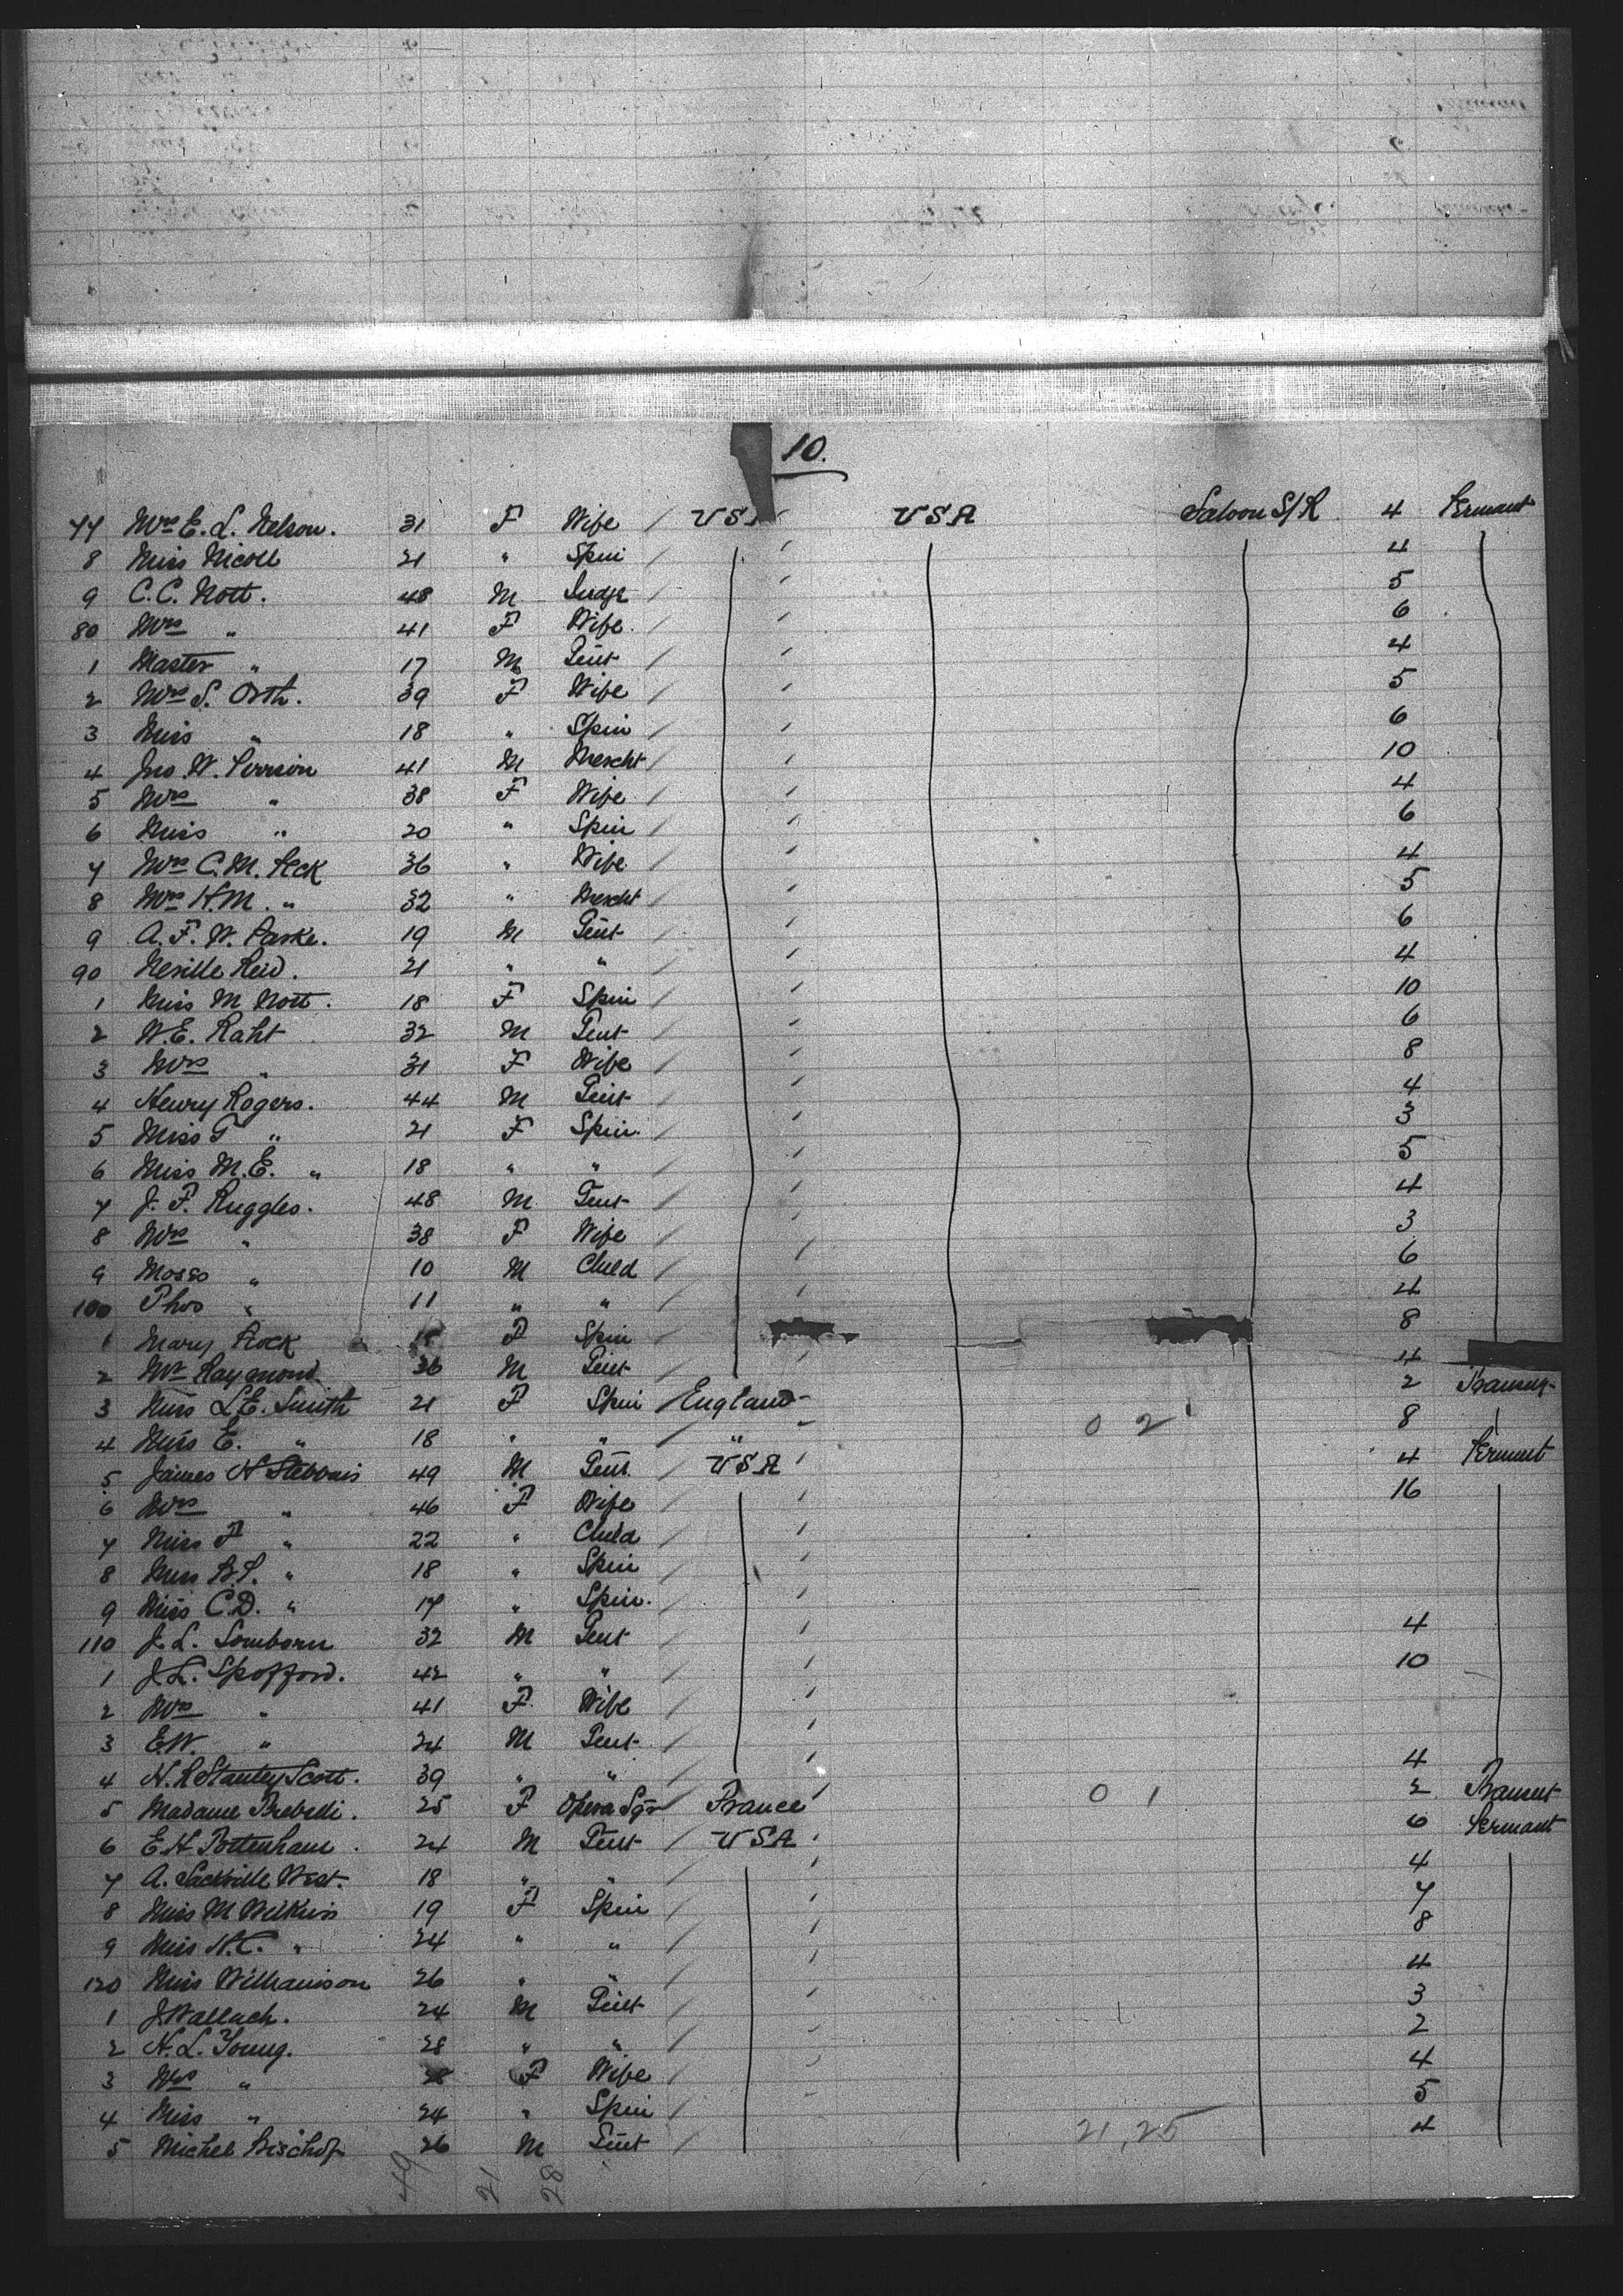 10.
77 Mrs E. L. Nelson. 31 F Wife / USA USA Saloon S/R 4 Permant
8 Miss Nicoll 21 " Spin / 4
9 C.C. Nott. 48 M Judge / 5
80 Mrs " 41 F Wife / 6
1 Master " 17 M Gent / 4
2 Mrs S. Orth. 39 F Wife / 5
3 Miss " 18 " Spin / 6
4 Jno. W. 41 M Mercht / 10
5 Mrs " 38 F Wife / 4
6 Miss " 20 " Spin / 6
7 Mrs C. M. Peck 36 " Wife / 4
8 Mrs H. M. " 32 " Mercht / 5
9 A. F. W. 19 M Gent / 6
90 Neville Reid. 21 " " / 4
1 Miss M Nott. 18 F Spin / 10
2 W. E. Raht 32 M Gent / 6
3 Mrs " 31 F Wife / 8
4 Henry Rogers. 44 M Gent / 4
5 Miss G " 21 F Spin / 3
6 Miss M. E. " 18 " " / 5
7 J. F. Ruggles. 48 M Gent / 4
8 Mrs " 38 F Wife / 3
9 " 10 M Child / 6
100 " 11 " " / 4
1 Mary F Spin / 8
2 Mr Raymond 36 M Gent / 4
3 Miss L E. Smith 21 F Spin / England 0 2 2
4 Miss E. " 18 " " / " 8
5 James H Stebbins 49 M Gent. / USA 4 Permant
6 Mrs " 46 F Wife / 16
7 Miss F " 22 " Child /
8 Miss " 18 " Spin /
9 Miss C. D. " 17 " Spin. /
110 J. L. Somborn 32 M Gent / 4
1 J. L. Spofford. 42 " " / 10
2 Mrs " 41 F. Wife /
3 E. W. " 24 M Gent /
4 H. R Stanley Scott. 39 " " / 4
5 Madame Trebelli. 25 F Opera Sgr / France 0 1 2
6 E H 24 M Gent / USA 6 Permant
7 A. Sackville West. 18 " " / 4
8 Miss M Wilkins 19 F Spin / 7
9 Miss " 24 " " / 8
120 Miss Williamson 26 " " / 4
1 J Wallach. 24 M Gent / 3
2 H. L. Young. 28 " " / 2
3 Mrs " F Wife / 4
4 Miss " 24 " Spin / 5
5 Michel Bischof 26 M Gent / 21,25 4
49 21 28